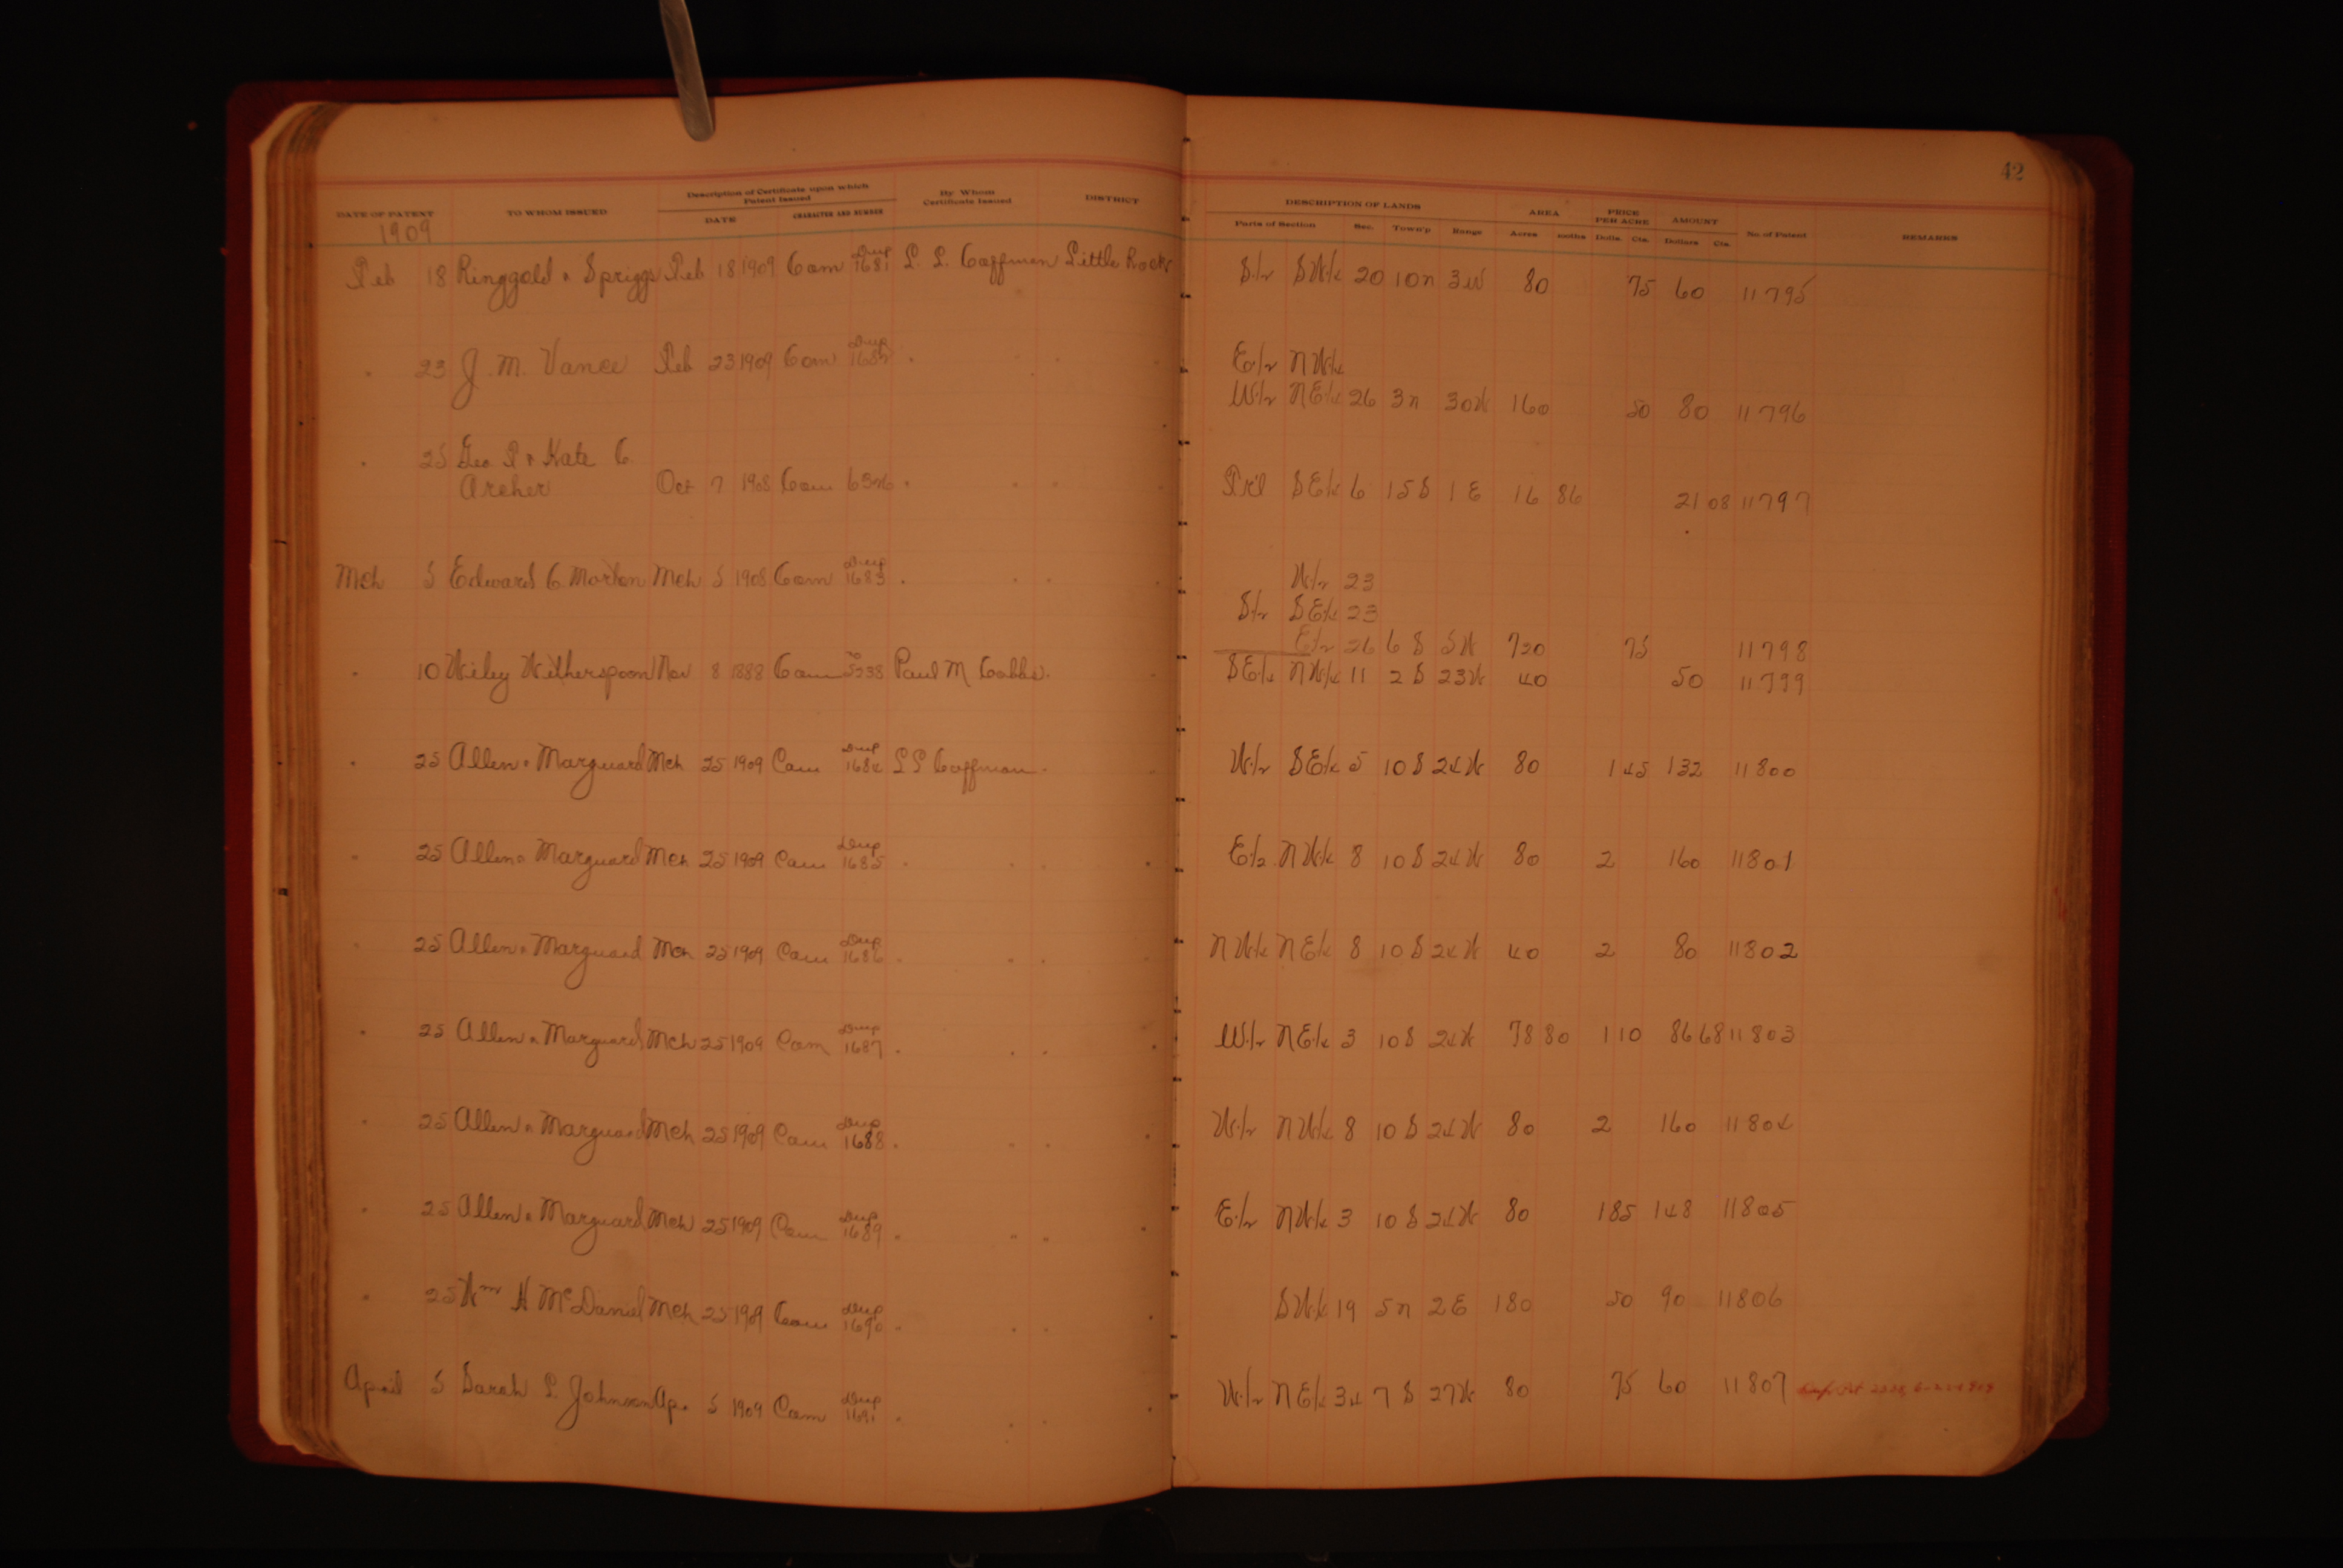 42
DATE OF PATENT TO WHOM ISSUED Description of Certificate upon which Patent Issued By Whom Certificate Issued DISTRICT DESCRIPTION OF LANDS AREA PRICE PER ACRE AMOUNT No. of Patent REMARKS
DATE CHARACTER AND NUMBER Parts of Section Sec. Town'p Range Acres Dolls. Cts. Dollars Cts.
1909
Feb 18 Ringgold & Spriggs Feb 18 1909 Com Dup 1681 L. L. Coffman Little Rock S 1/2 SW 1/4 20 10n 3W 80 75 60 11795
" 23 J. M. Vance Feb 23 1909 Com Dup 1682 " " " E 1/2 NW 1/4
W 1/2 NE 1/4 26 3n 30W 160 50 80 11796
" 25 Geo P & Kate C.
Archer Oct 7 1908 Com " " " Fr'l SE 1/4 6 15S 1E 16 86 21 08 11797
Mch 5 Edward C. Morton Mch 5 1908 Com Dup 1683 " " " W 1/2 23
S 1/2 SE 1/4 23
E 1/2 26 6S 5W 720 75 11798
" 10 Wiley Witherspoon Nov 8 1888 Com 5238 Paul M Cobbs " SE 1/4 NW 1/4 11 2S 23W 40 50 11799
" 25 Allen & Marguard Mch 25 1909 Com Dup 1684 L L Coffman " W 1/2 SE 1/4 5 10S 24W 80 1 45 132 11800
" 25 Allen & Marguard Mch 25 1909 Com Dup 1685 " " " E 1/2 NW 1/4 8 10S 24W 80 2 160 11801
" 25 Allen & Marguard Mch 25 1909 Com Dup 1686 " " " NW 1/4 NE 1/4 8 10S 24W 40 2 80 11802
" 25 Allen & Marguard Mch 25 1909 Com Dup 1687 " " " W 1/2 NE 1/4 3 10S 24W 78 80 1 10 86 68 11803
" 25 Allen & Marguard Mch 25 1909 Com Dup 1688 " " " W 1/2 NW 1/4 8 10S 24W 80 2 160 11804
" 25 Allen & Marguard Mch 25 1909 Com Dup 1689 " " " E 1/2 NW 1/4 3 10S 24W 80 1 85 148 11805
" 25 Wm H McDaniel Mch 25 1909 Com Dup 1690 " " " SW 1/4 19 5n 2E 180 50 90 11806
April 5 Sarah L. Johnson Ap. 5 1909 Com Dup 1691 " " " W 1/2 NE 1/4 34 7S 27W 80 75 60 11807